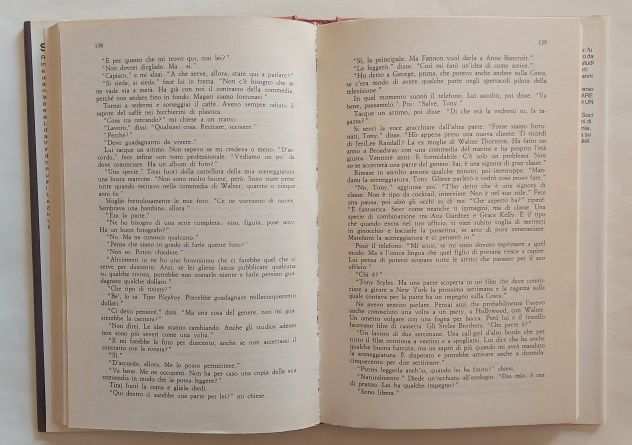 138
"È per questo che mi trovo qui, non lei?"
"Non dovrei dirglielo. Ma... sì."
"Capisco," e mi alzai. "A che serve, allora, stare qui a parlare?"
"Si sieda, si sieda," fece lui in fretta. "Non c'è bisogno che se
ne vada via a metà. Ha già con noi il contratto della commedia,
perché non andare fino in fondo. Magari siamo fortunati."
Tornai a sedermi e sorseggiai il caffè. Avevo sempre odiato il
sapore del caffè nei bicchierini di plastica.
"Cosa sta cercando?" mi chiese a un tratto.
"Lavoro," dissi. "Qualsiasi cosa. Recitare, scrivere."
"Perché?"
"Devo guadagnarmi da vivere."
Lui tacque un attimo. Non sapevo se mi credeva o meno. "D'ac-
cordo," fece infine con tono professionale. "Vediamo un po' da
dove cominciare. Ha un album di foto?"
"Una specie." Tirai fuori della cartellina della mia sceneggiatura
una busta. "Non sono molto buone, però. Sono state prese
tutte quando recitavo nella commedia di Walter, quattro o cinque
anni fa."
Voglio brevemente le mie foto. "Ce ne vorranno di nuove.
Sembrava una bambina, allora."
"Era la parte."
"Ne ho bisogno di una serie completa: viso, figura, pose sexy.
Ha un buon fotografo?"
"No. Ma ne conosco qualcuno."
"Pensa che siano in grado di farle queste foto?"
"Non so. Posso chiedere."
"Altrimenti io ne ho uno bravissimo che ci farebbe quel che ci
serve per duecento. Anzi, se lei gliene lascia pubblicare qualcuna
su qualche rivista, potrebbe non costarle niente e farle persino gua-
dagnare qualche dollaro."
"Che tipo di riviste?"
"Be', lo sa. Tipo Playboy. Potrebbe guadagnare millecinquecento
dollari."
"Ci devo pensare," dissi. "Ma una cosa del genere, non mi gua-
sterebbe la carriera?"
"Non direi. Le idee stanno cambiando. Anche gli studios adesso
non sono più severi come una volta."
"E mi farebbe le foto per duecento, anche se non accettassi il
contratto con la rivista?"
"Sì."
"D'accordo, allora. Me lo posso permettere."
"Va bene. Me ne occuperò. Non ha per caso una copia della sua
commedia in modo che la possa leggere?"
Tirai fuori la copia e gliela diedi.
"Qui dentro ci sarebbe una parte per lei?" mi chiese.
139
"Sì, la principale. Ma Fannon vuol darla a Anne Bancroft."
"Lo leggerò," disse. "Così mi farò un'idea di come scrive."
"Ho detto a George, prima, che potevo anche andare sulla Costa,
se c'era modo di avere qualche parte negli spettacoli pilota della
televisione."
In quel momento suonò il telefono. Lui ascoltò, poi disse: "Va
bene, passamelo." Poi: "Salve, Tony."
Tacque un attimo, poi disse: "Di che età la vedresti tu, la ra-
gazza?"
Si sentì la voce gracchiare dall'altra parte. "Forse siamo fortu-
nati, Tony," disse. "Ho appena preso una nuova cliente. Ti ricordi
di JeriLee Randall? La ex moglie di Walter Thornton. Ha fatto un
anno a Broadway con una commedia del marito e ha proprio l'età
giusta. Ventitré anni. È formidabile. C'è solo un problema. Non
so se accetterà una parte del genere. Sai, è una signora di gran classe."
Rimase in ascolto ancora qualche minuto, poi interruppe: "Man-
dami la sceneggiatura, Tony. Gliene parlerò e vedrò cosa posso fare."
"No, Tony," aggiunse poi. "T'ho detto che è una signora di
classe. Non è tipo da cocktail, interviste. Non è nel suo stile." Fece
una pausa, poi alzò gli occhi su di me. "Che aspetto ha?" ripeté.
"È fantastica. Sexy come neanche ti immagini, ma di classe. Una
specie di combinazione tra Ava Gardner e Grace Kelly. È il tipo
che quando entra nel tuo ufficio, ti vien subito voglia di metterti
in ginocchio e baciarle la passerina, in atto di pura venerazione.
Mandami la sceneggiatura e ci penserò io."
Posò il telefono. "Mi scusi, se mi sono dovuto esprimere a quel
modo. Ma è l'unica lingua che quel figlio di puttana riesce a capire.
Lui pensa di potersi scopare tutte le attrici che passano per il suo
ufficio."
"Chi è?"
"Tony Styles. Ha una parte scoperta in un film che deve comin-
ciare a girare a New York la prossima settimana e la ragazza sulla
quale contava per la parte ha un impegno sulla Costa."
Ne avevo sentito parlare. Pensai anzi che probabilmente l'avevo
anche conosciuto una volta a un party, a Hollywood, con Walter.
Un ometto volgare con una fogna per bocca. Però lui e il fratello
facevano film di cassetta. Gli Styles Brothers. "Che parte è?"
"Un lavoro di due settimane. Una call-girl d'alto bordo che per
tutto il film continua a vestirsi e a spogliarsi. Lui dice che ha anche
qualche buona battuta, ma ne saprò di più quando mi avrà mandato
la sceneggiatura. È disperato e potrebbe arrivare anche a duemila
cinquecento per due settimane."
"Potrei leggerla anch'io, quando lei ha finito?" chiesi.
"Naturalmente." Diede un'occhiata all'orologio. "Dio mio, è ora
di pranzo. Lei ha qualche impegno?"
"Sono libera."